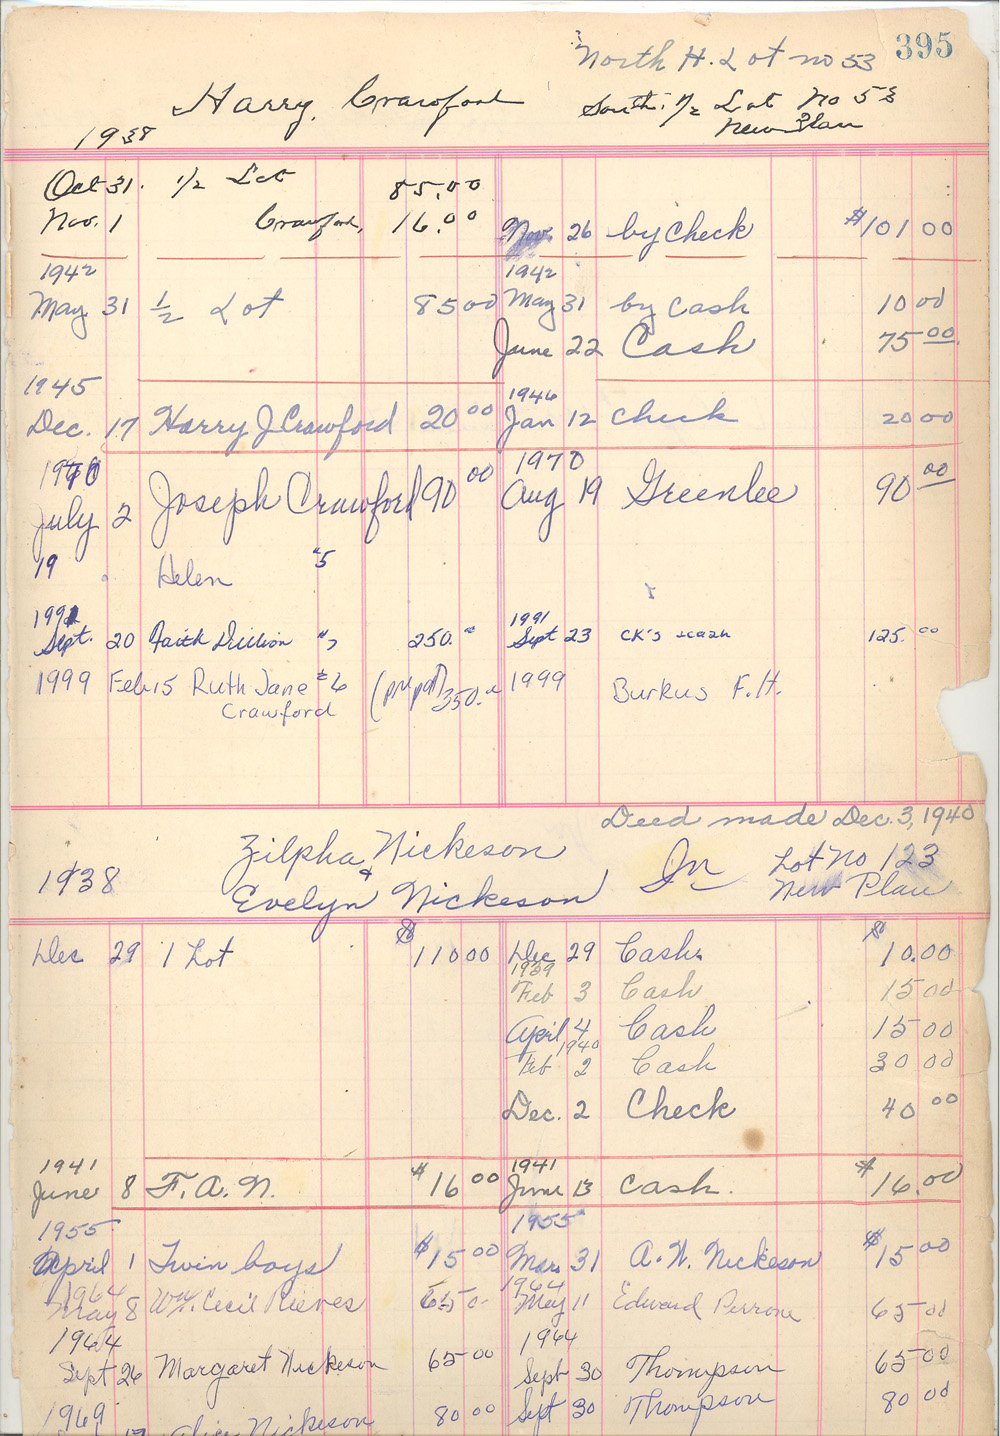 395
North H. Lot no 53
Harry Crawford South 1/2 Lot No 53
1938 New Plan
Oct 31. 1/2 Lot 85.00
Nov. 1 Crawford, 16.00 Nov. 26 by Check $101 00
1942 1942
May 31 1/2 Lot 85 00 May 31 by Cash 10 00
June 22 Cash 75 00
1945 1946
Dec. 17 Harry J Crawford 20 00 Jan 12 Check 20 00
1970 1970
July 2 Joseph Crawford 90 00 Aug 19 Greenlee 90 00
19 Helen "5
1991 1991
Sept. 20 Faith 250. Sept 23 CK's 125. 00
1999 Feb 15 Ruth Jane #6 (pre pd) 350. 1999 Burkus F.H.
Crawford
Deed made Dec. 3, 1940
Zilpha Nickeson In Lot No 123
1938 & New Plan
Evelyn Nickeson
Dec 29 1 Lot $110 00 Dec 29 Cash. $10.00
1939
Feb 3 Cash 15 00
April 4 Cash 15 00
1940
Feb 2 Cash 30 00
Dec. 2 Check 40 00
1941 1941
June 8 F. A. N. $16 00 June 13 Cash. $16.00
1955 1955
April 1 Twin boys $15 00 Mar. 31 A. N. Nickeson $15 00
1964 1964
May 8 Cecil Rieves 65 0- May 11 Edward Perrone 65 00
1964 1964
Sept 26 Margaret Nickeson 65 00 Sept 30 Thompson 65 00
1969 80 00 Sept 30 Thompson 80 00
17 Alice Nickeson